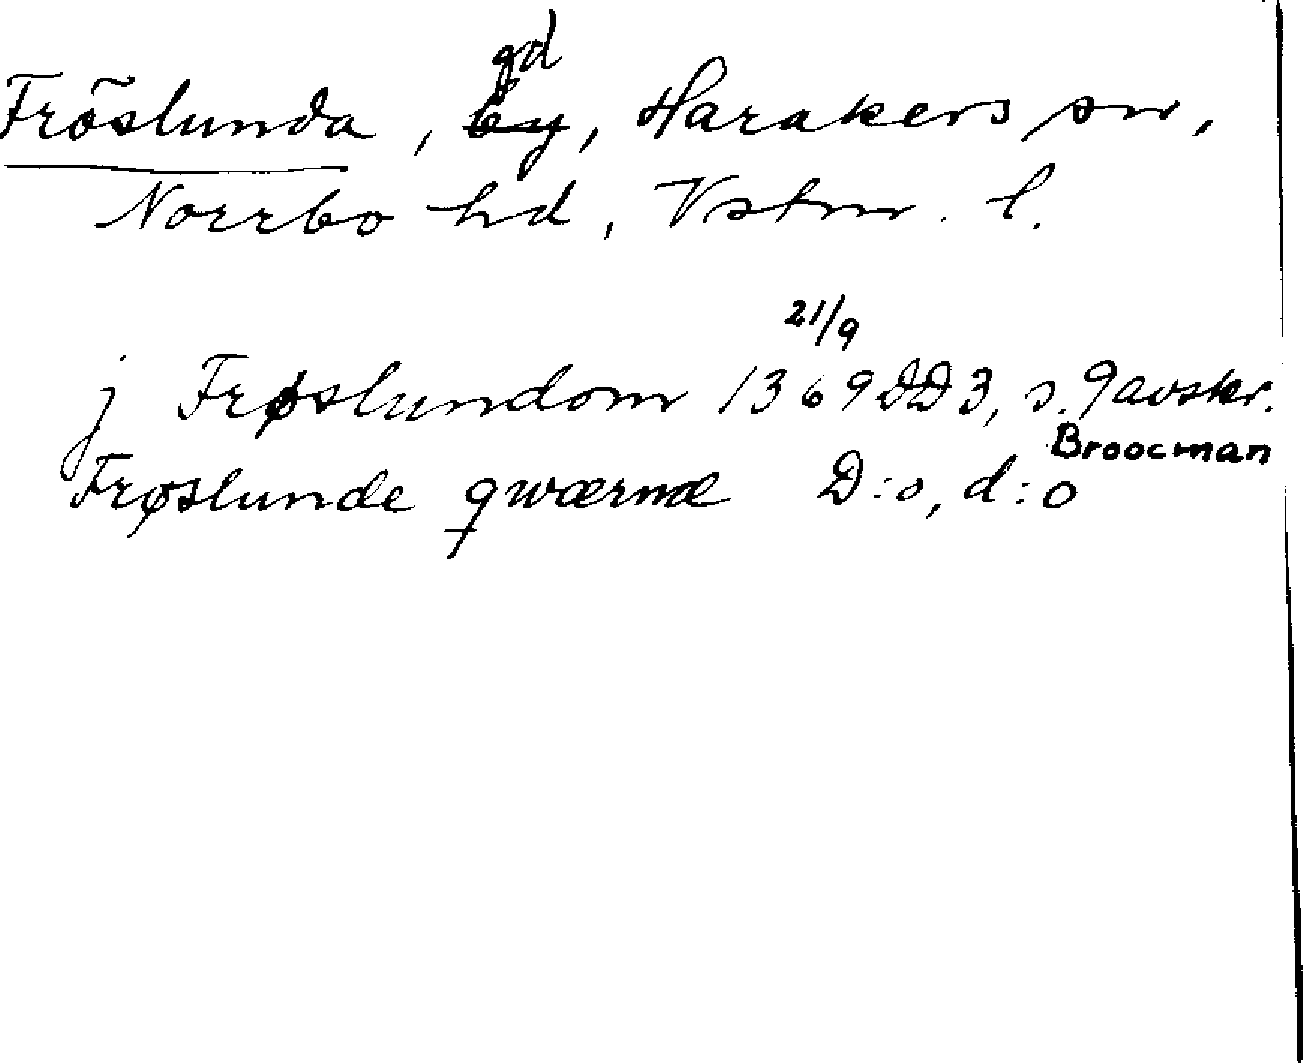 gd
Fröslunda, by, Harakers sn,
Norrbo hd, Vstm. l.
21/9
j Frøslundom 1369 DD3, s. 9 avskr.
Broocman
Frøslunde qwærnæ D:o, d:o